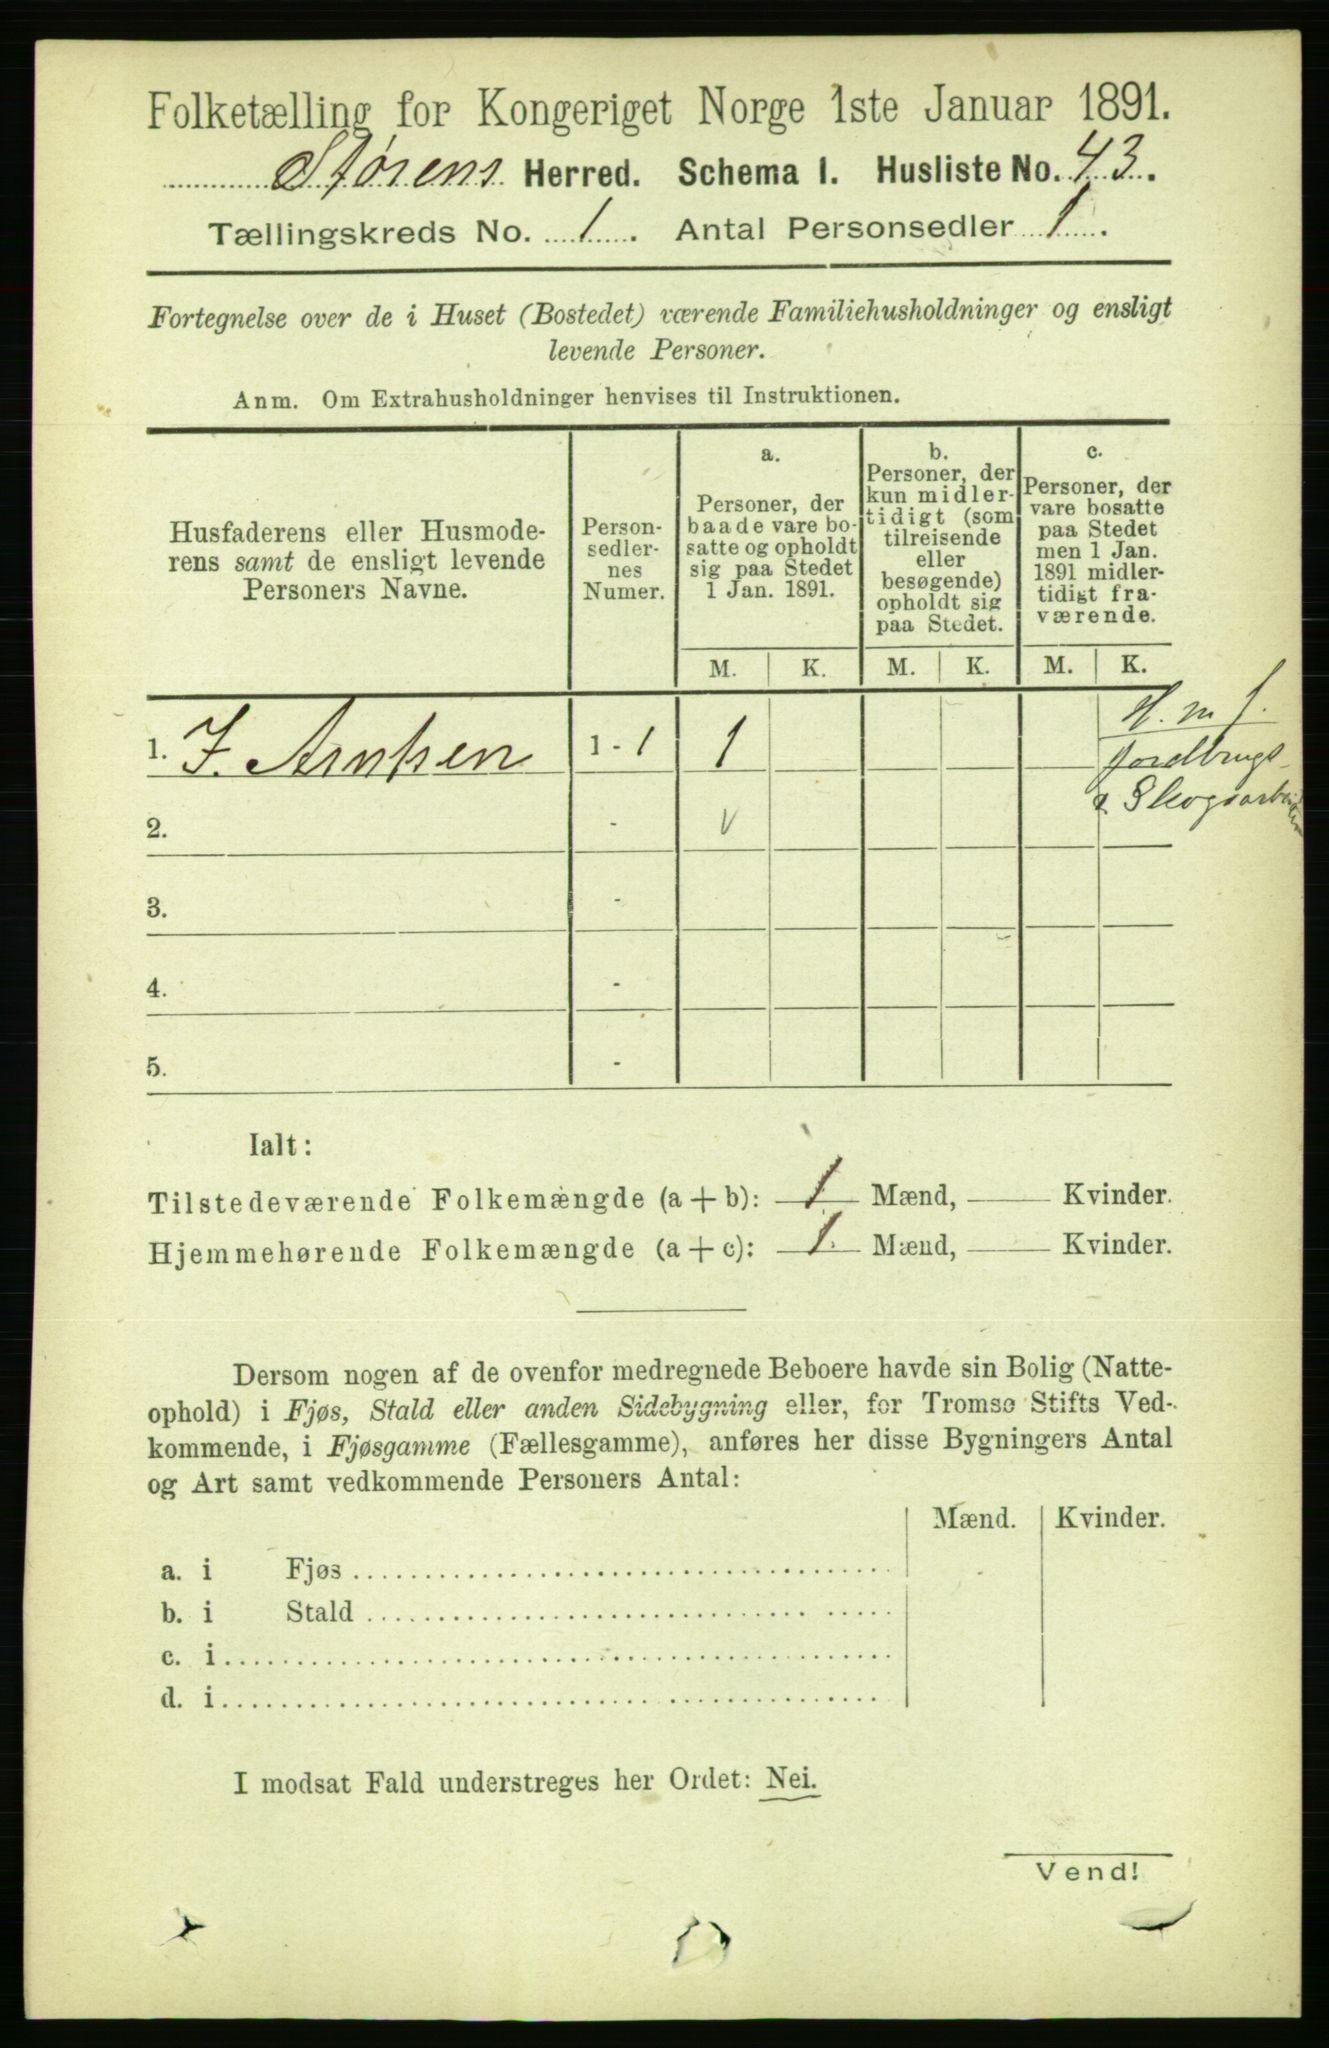 Folketælling for Kongeriget Norge 1ste Januar 1891.
Størens Herred. Schema 1. Husliste No. 43.
Tællingskreds No. 1. Antal Personsedler 1.
Fortegnelse over de i Huset (Bostedet) værende Familiehusholdninger og ensligt
levende Personer.
Anm. Om Extrahusholdninger henvises til Instruktionen.
Husfaderens eller Husmode-
rens samt de ensligt levende
Personers Navne.
Person-
sedler-
nes
Numer.
a.
Personer, der
baade vare bo-
satte og opholdt
sig paa Stedet
1 Jan. 1891.
b.
Personer, der
kun midler-
tidigt (som
tilreisende
eller
besøgende)
opholdt sig
paa Stedet.
c.
Personer, der
vare bosatte
paa Stedet
men 1 Jan.
1891 midler-
tidigt fra-
værende.
M. K. M. K. M. K.
H. m f.
1. J. Arntsen 1 - 1 1
Jordbrugs-
& Skogsarbeider
2. - v
3. -
4. -
5. -
Ialt:
Tilstedeværende Folkemængde (a + b): 1 Mænd, — Kvinder.
Hjemmehørende Folkemængde (a + c): 1. Mænd, — Kvinder.
Dersom nogen af de ovenfor medregnede Beboere havde sin Bolig (Natte-
ophold) i Fjøs, Stald eller anden Sidebygning eller, for Tromsø Stifts Ved-
kommende, i Fjøsgamme (Fællesgamme), anføres her disse Bygningers Antal
og Art samt vedkommende Personers Antal:
Mænd. Kvinder.
a. i Fjøs
b. i Stald
c. i
d. i
I modsat Fald understreges her Ordet: Nei.
Vend!